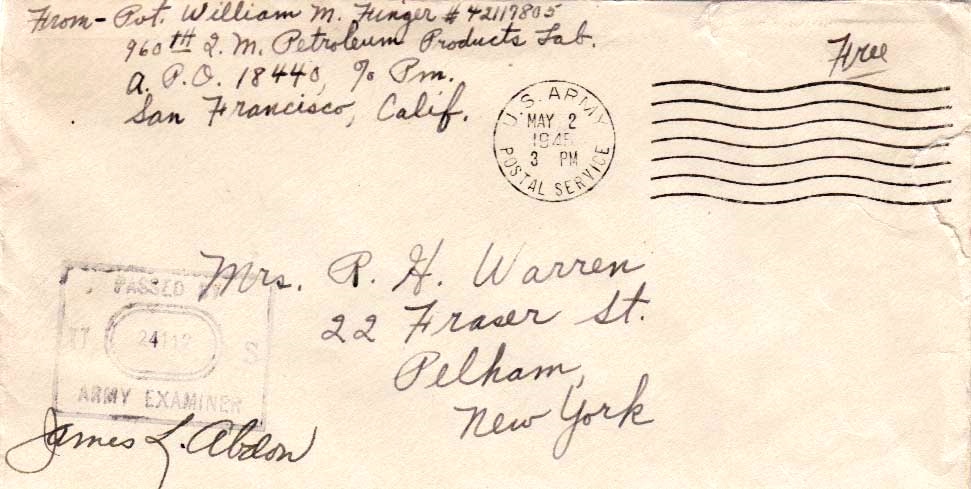 From- Pvt. William M. Finger # 42119805
960th Q. M. Petroleum Products Lab.
A. P. O. 18440, c/o Pm.
San Francisco, Calif.
Free
U.S. ARMY
MAY 2
1945
3 PM
POSTAL SERVICE
Mrs. R. H. Warren
22 Fraser St.
Pelham,
New York
PASSED BY
S
ARMY EXAMINER
James L. Abdon